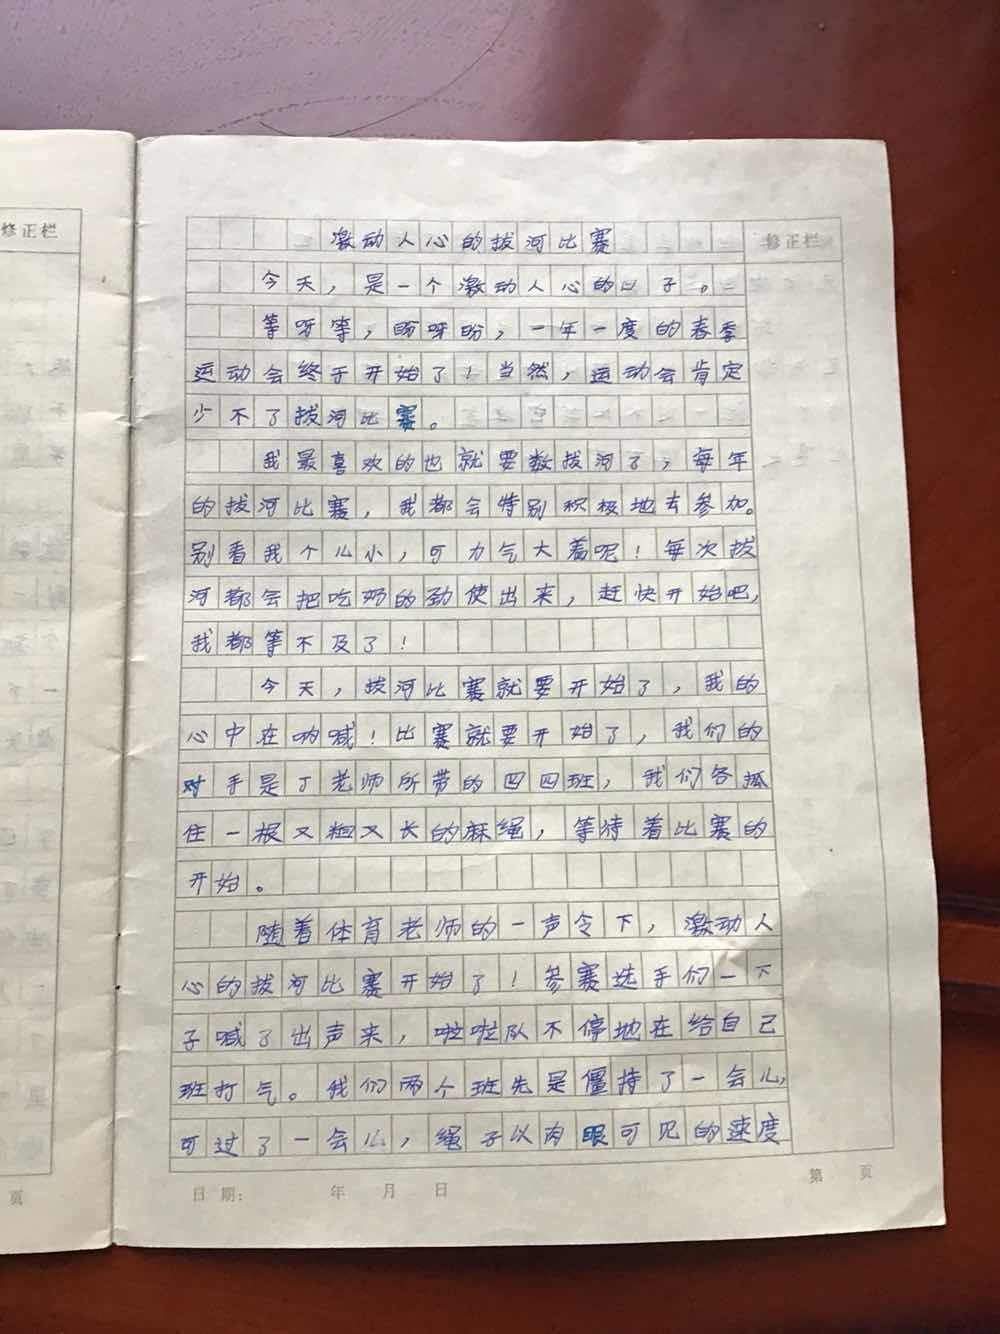 修正栏
激动人心的拔河比赛
修正栏
今天，是一个激动人心的日子。
等呀等，盼呀盼，一年一度的春季
运动会终于开始了！当然，运动会肯定
少不了拔河比赛。
我最喜欢的也就要数拔河了，每年
的拔河比赛，我都会特别积极地去参加。
别看我个儿小，可力气大着呢！每次拔
河都会把吃奶的劲使出来，赶快开始吧，
我都等不及了！
今天，拔河比赛就要开始了，我的
心中在呐喊！比赛就要开始了，我们的
对手是丁老师所带的四四班，我们各抓
住一根又粗又长的麻绳，等待着比赛的
开始。
随着体育老师的一声令下，激动人
心的拔河比赛开始了！参赛选手们一下
子喊了出声来，啦啦队不停地在给自己
班打气。我们两个班先是僵持了一会儿，
可过了一会儿，绳子以肉眼可见的速度
页
日期： 年 月 日
第 页